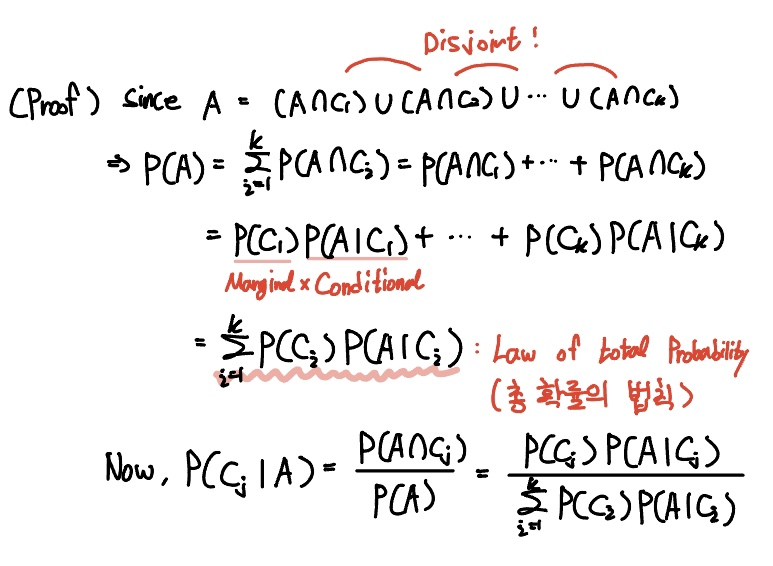 Disjoint!
(Proof) since A = (A∩C₁) ∪ (A∩C₂) ∪ ⋯ ∪ (A∩Cₖ)
⇒ P(A) = ∑ᵢ₌₁ᵏ P(A∩Cᵢ) = P(A∩C₁) + ⋯ + P(A∩Cₖ)
= P(C₁)P(A|C₁) + ⋯ + P(Cₖ)P(A|Cₖ)
Marginal × Conditional
= ∑ᵢ₌₁ᵏ P(Cᵢ)P(A|Cᵢ) : Law of total Probability
(총 확률의 법칙)
Now, P(Cⱼ|A) = P(A∩Cⱼ) / P(A) = P(Cⱼ)P(A|Cⱼ) / ∑ᵢ₌₁ᵏ P(Cᵢ)P(A|Cᵢ)